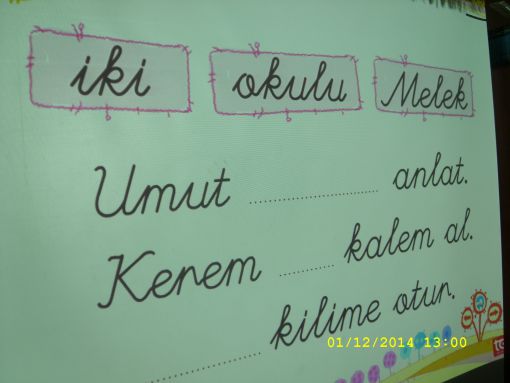 iki okulu Melek
Umut .................... anlat.
Kerem ......... kalem al.
.................... kilime otur.
01/12/2014 13:00